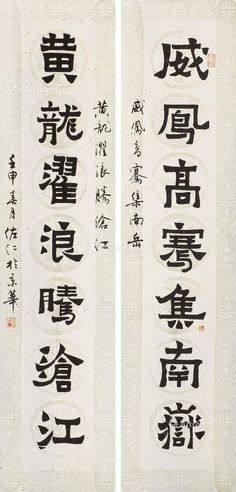 威鳳高騫集南嶽
威鳳高騫集南岳
黄龍濯浪騰滄江
黄龍濯浪騰滄江
壬申春月佐仁於京華